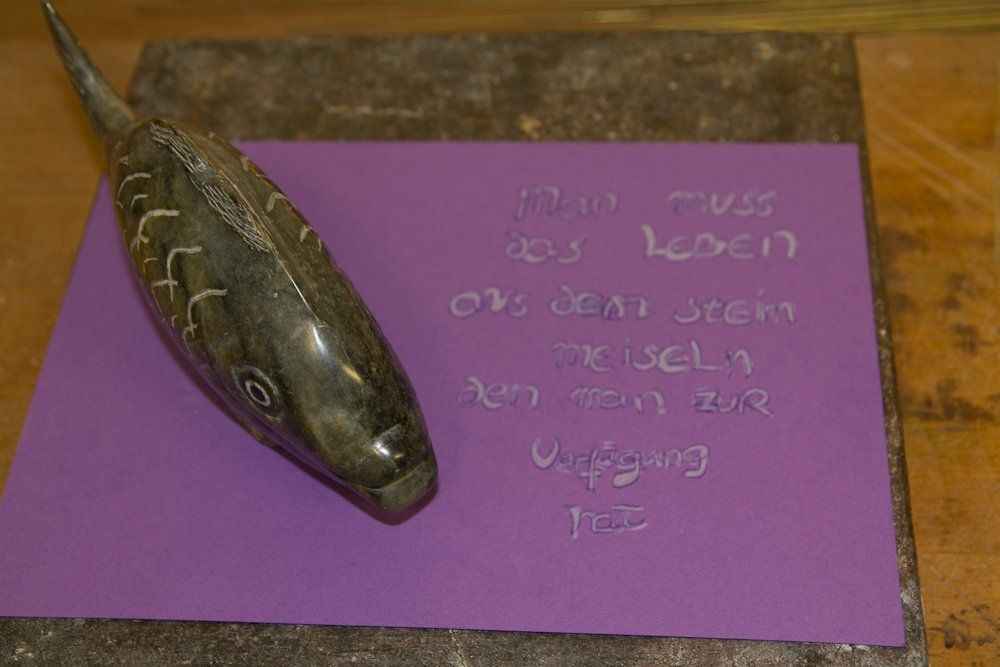 Man muss
das LEBEN
aus dem stein
meiseLn
den man zuR
Verfügung
hat